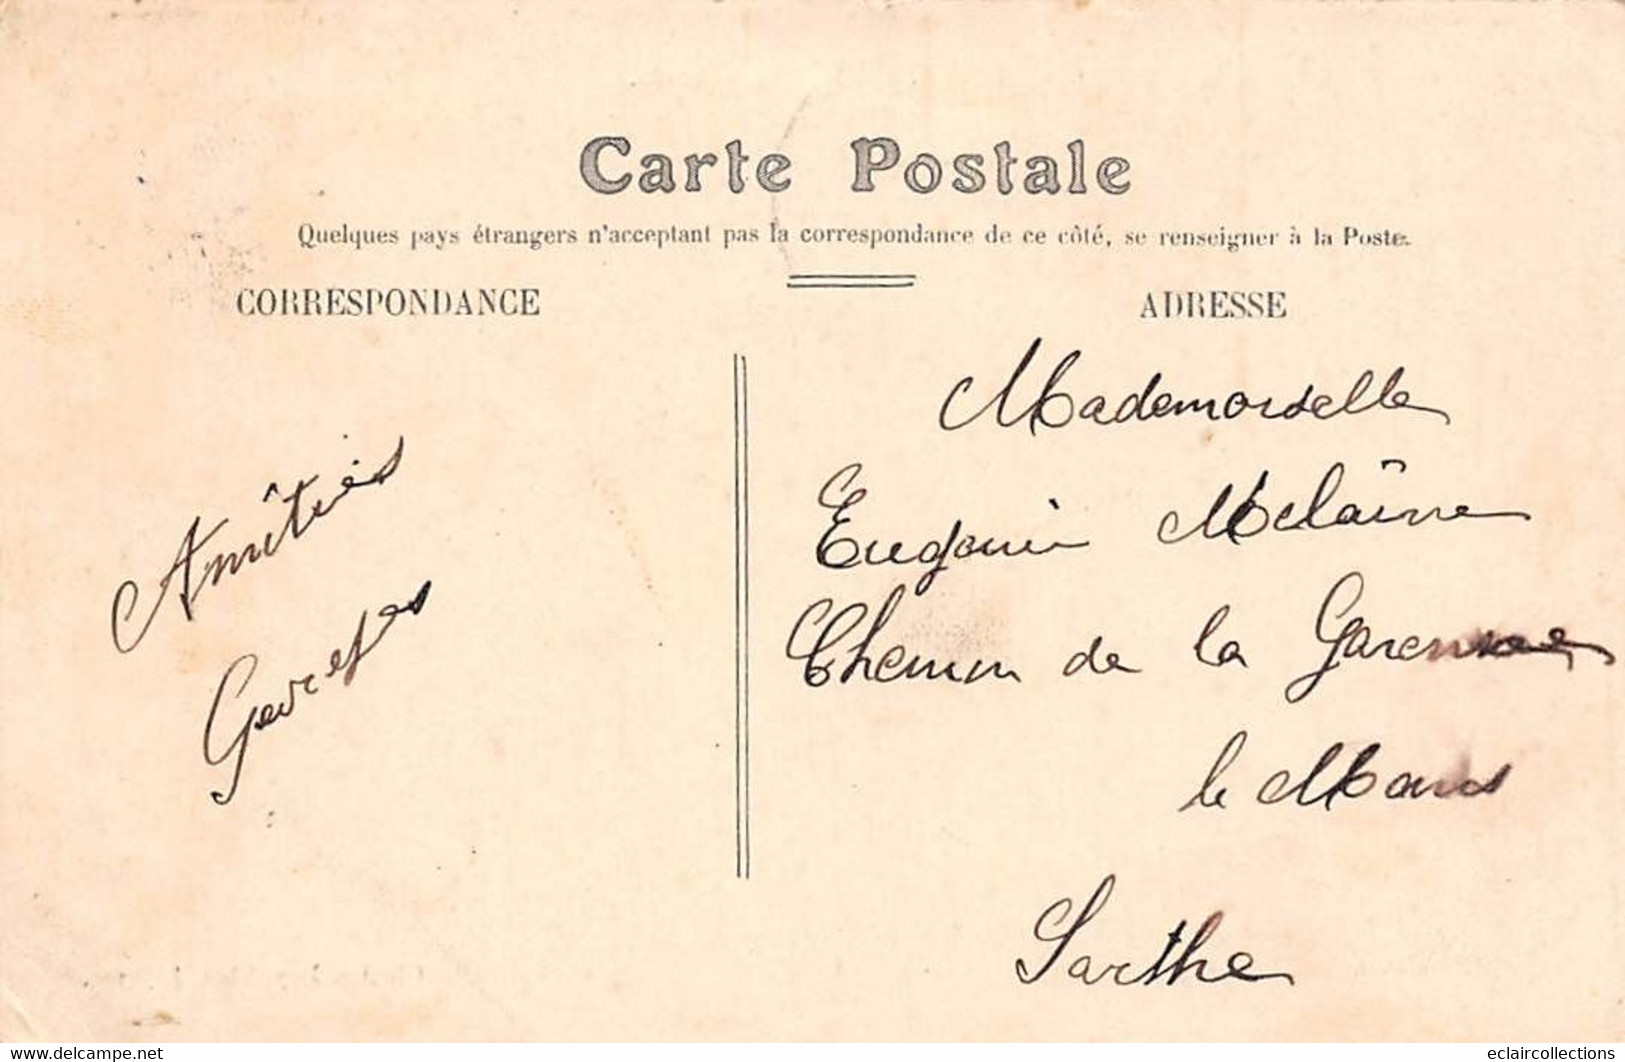 Carte Postale
Quelques pays étrangers n'acceptant pas la correspondance de ce côté, se renseigner à la Poste.
CORRESPONDANCE
ADRESSE
Amitiés
Mademoiselle
Eugénie
Chemin de la
le Mans
Sarthe
delcampe.net
eclaircollections